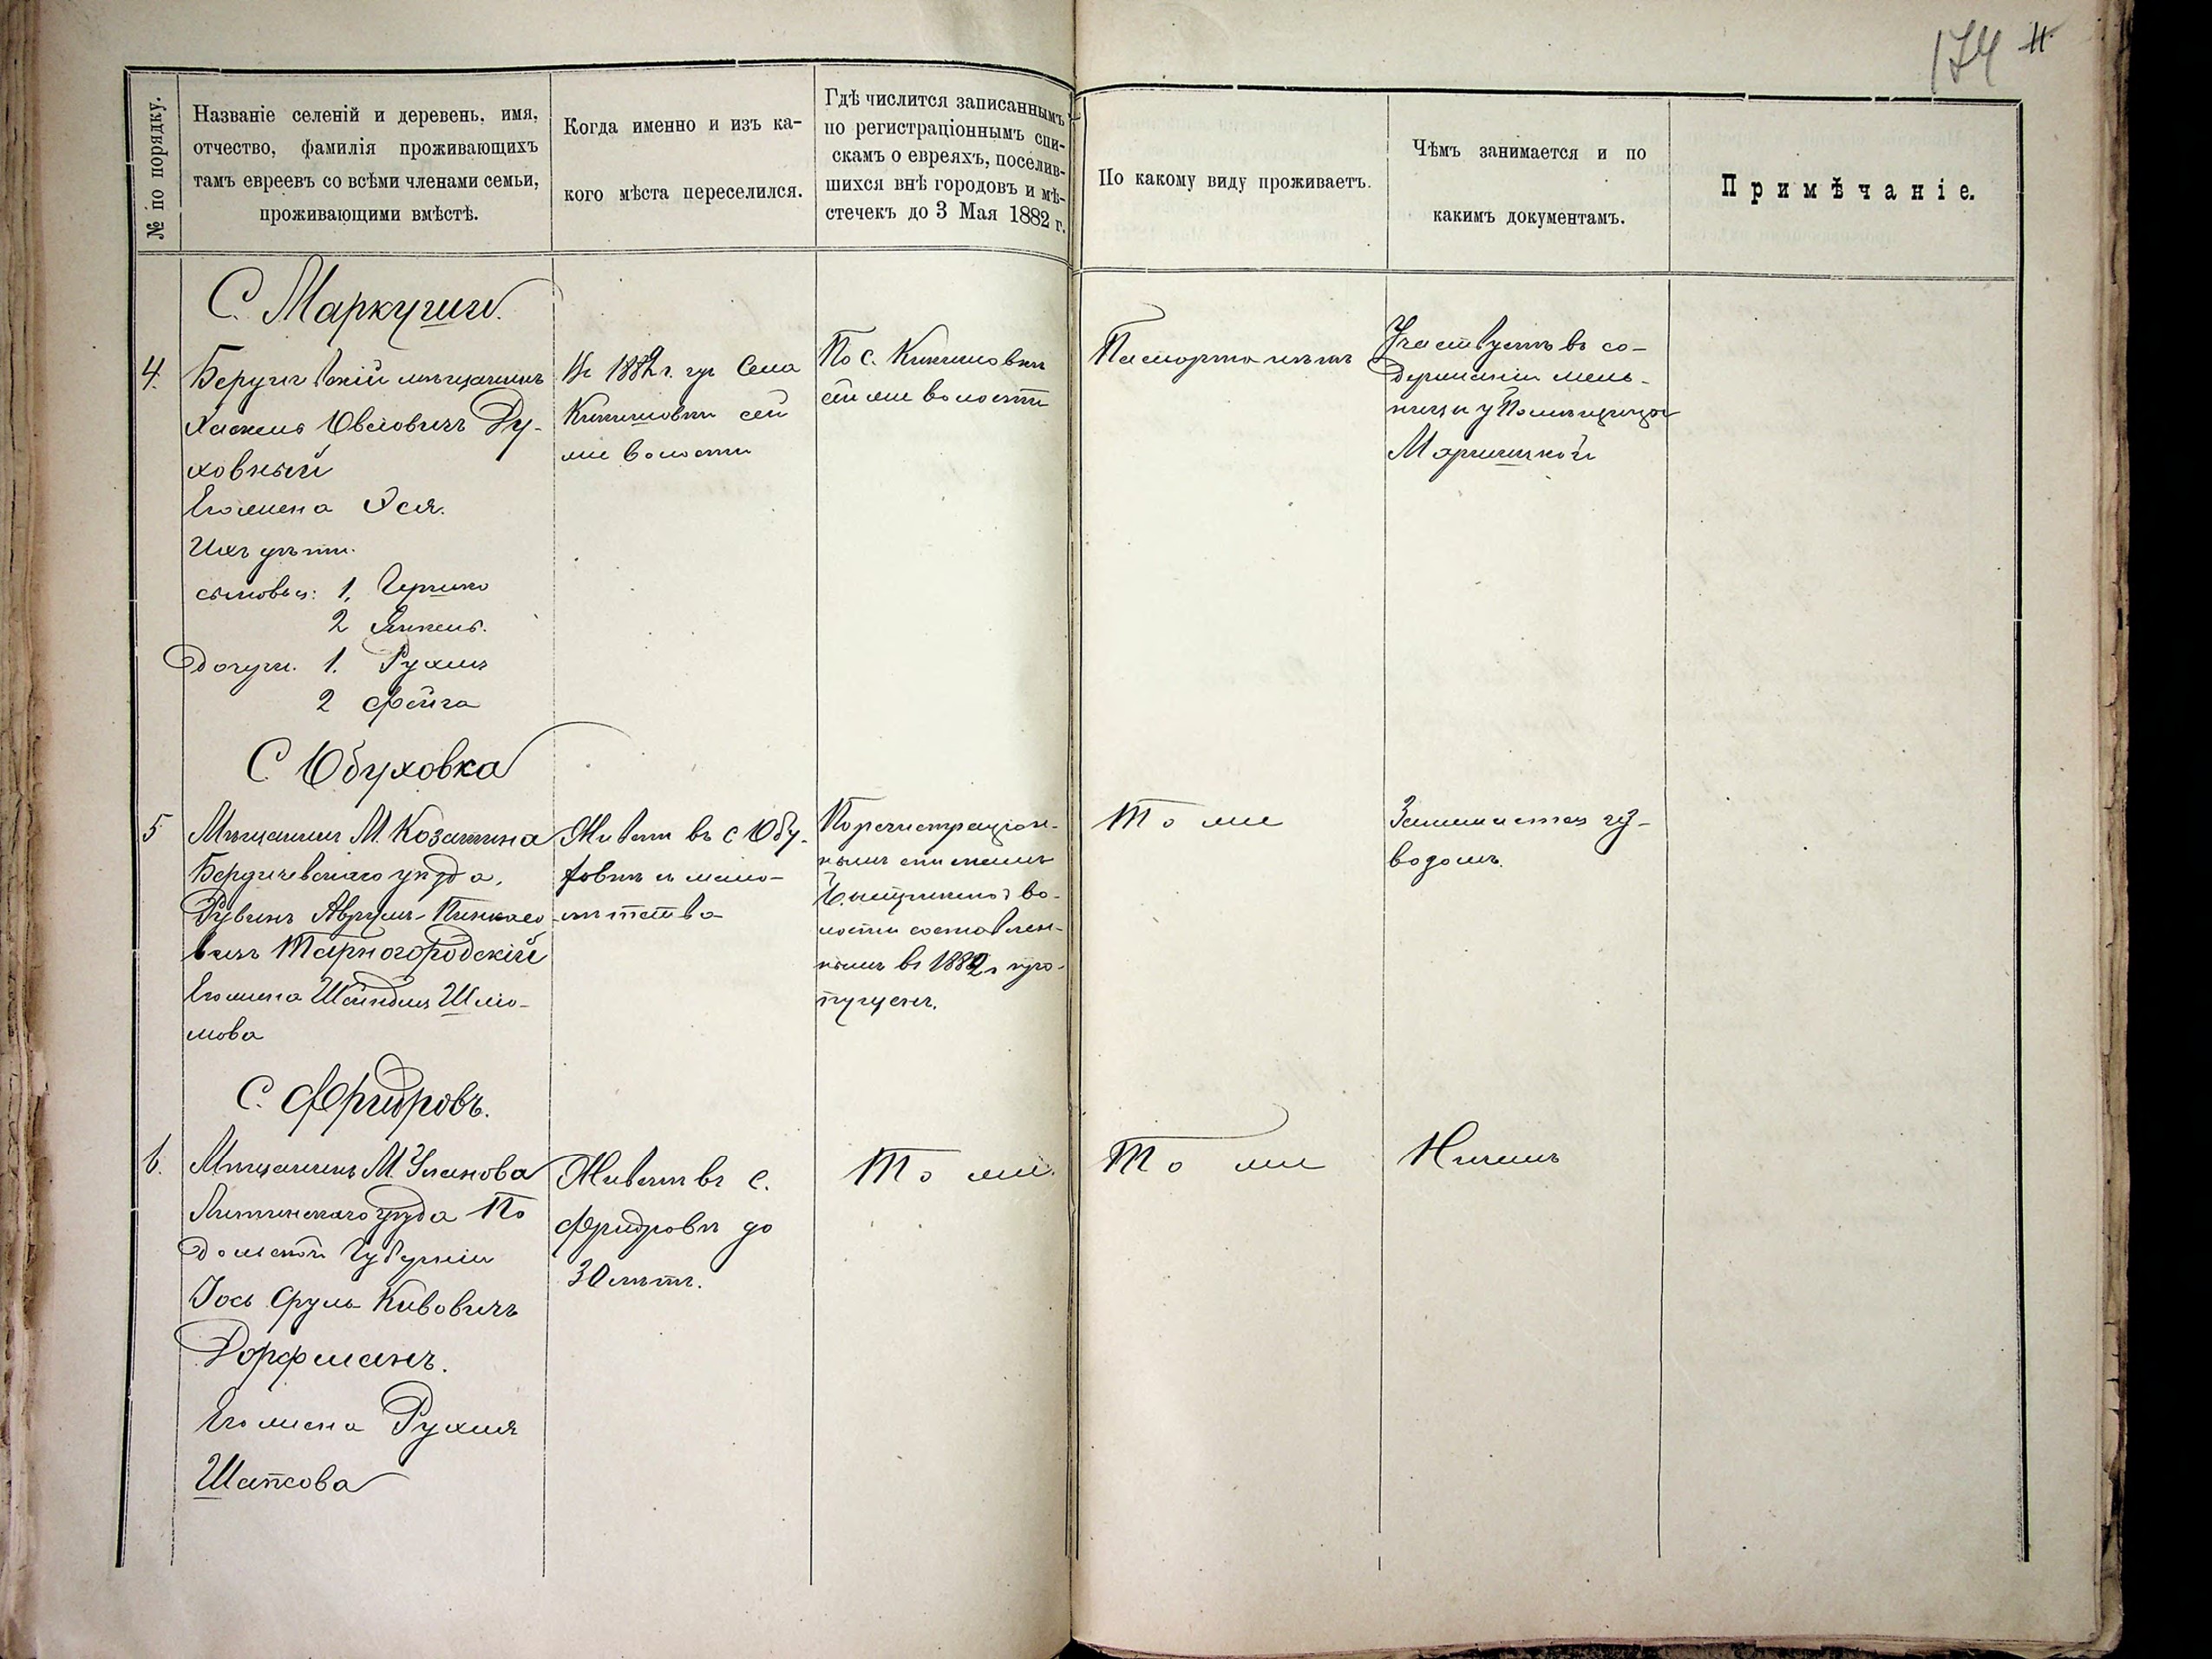 174
№ по порядку.
Названіе селеній и деревень, имя,
отчество, фамилія проживающихъ
тамъ евреевъ со всѣми членами семьи,
проживающими вмѣстѣ.
Когда именно и изъ ка-
кого мѣста переселился.
Гдѣ числится записаннымъ
по регистраціоннымъ спи-
скамъ о евреяхъ, поселив-
шихся внѣ городовъ и мѣ-
стечекъ до 3 Мая 1882 г.
По какому виду проживаетъ.
Чѣмъ занимается и по
какимъ документамъ.
Примѣчаніе.
С. Маркуши
4.
Бердичевскій мѣщанинъ
Хаскель Овсіовичъ Ду-
ховный
Его жена Эся.
Ихъ дѣти.
сыновья: 1, Гершко
2 Янкель.
Дочери. 1. Рухля
2 Фейга
Въ 1882 г. изъ села
Кикишовки сей
же волости
По с. Кикишовкѣ
сей же волости
Паспорта нѣтъ
Участвуетъ въ со-
держаніи мель-
ницы у Помѣщицы
С. Обуховка
5
Мѣщанинъ М. Козатина
Бердичевскаго уѣзда,
Рувинъ Аврумъ-Пинхасо
вичъ Тарногородскій
Его жена Шейндля Шліо-
мова
Живетъ въ с Обу-
ховкѣ съ мало-
лѣтства
По регистраціон-
нымъ спискамъ
волости составлен-
нымъ въ 1882 г про-
пущенъ.
То же
Занимается из-
возомъ.
С. Фридровъ.
6.
Мѣщанинъ М. Уланова
Литинскаго уѣзда По
дольской Губерніи
Іось Сруль Кивовичъ
Дорфманъ.
Его жена Рухля
Шапсова
Живетъ въ с.
Фридровѣ до
30 лѣтъ.
То же.
То же
Ничемъ